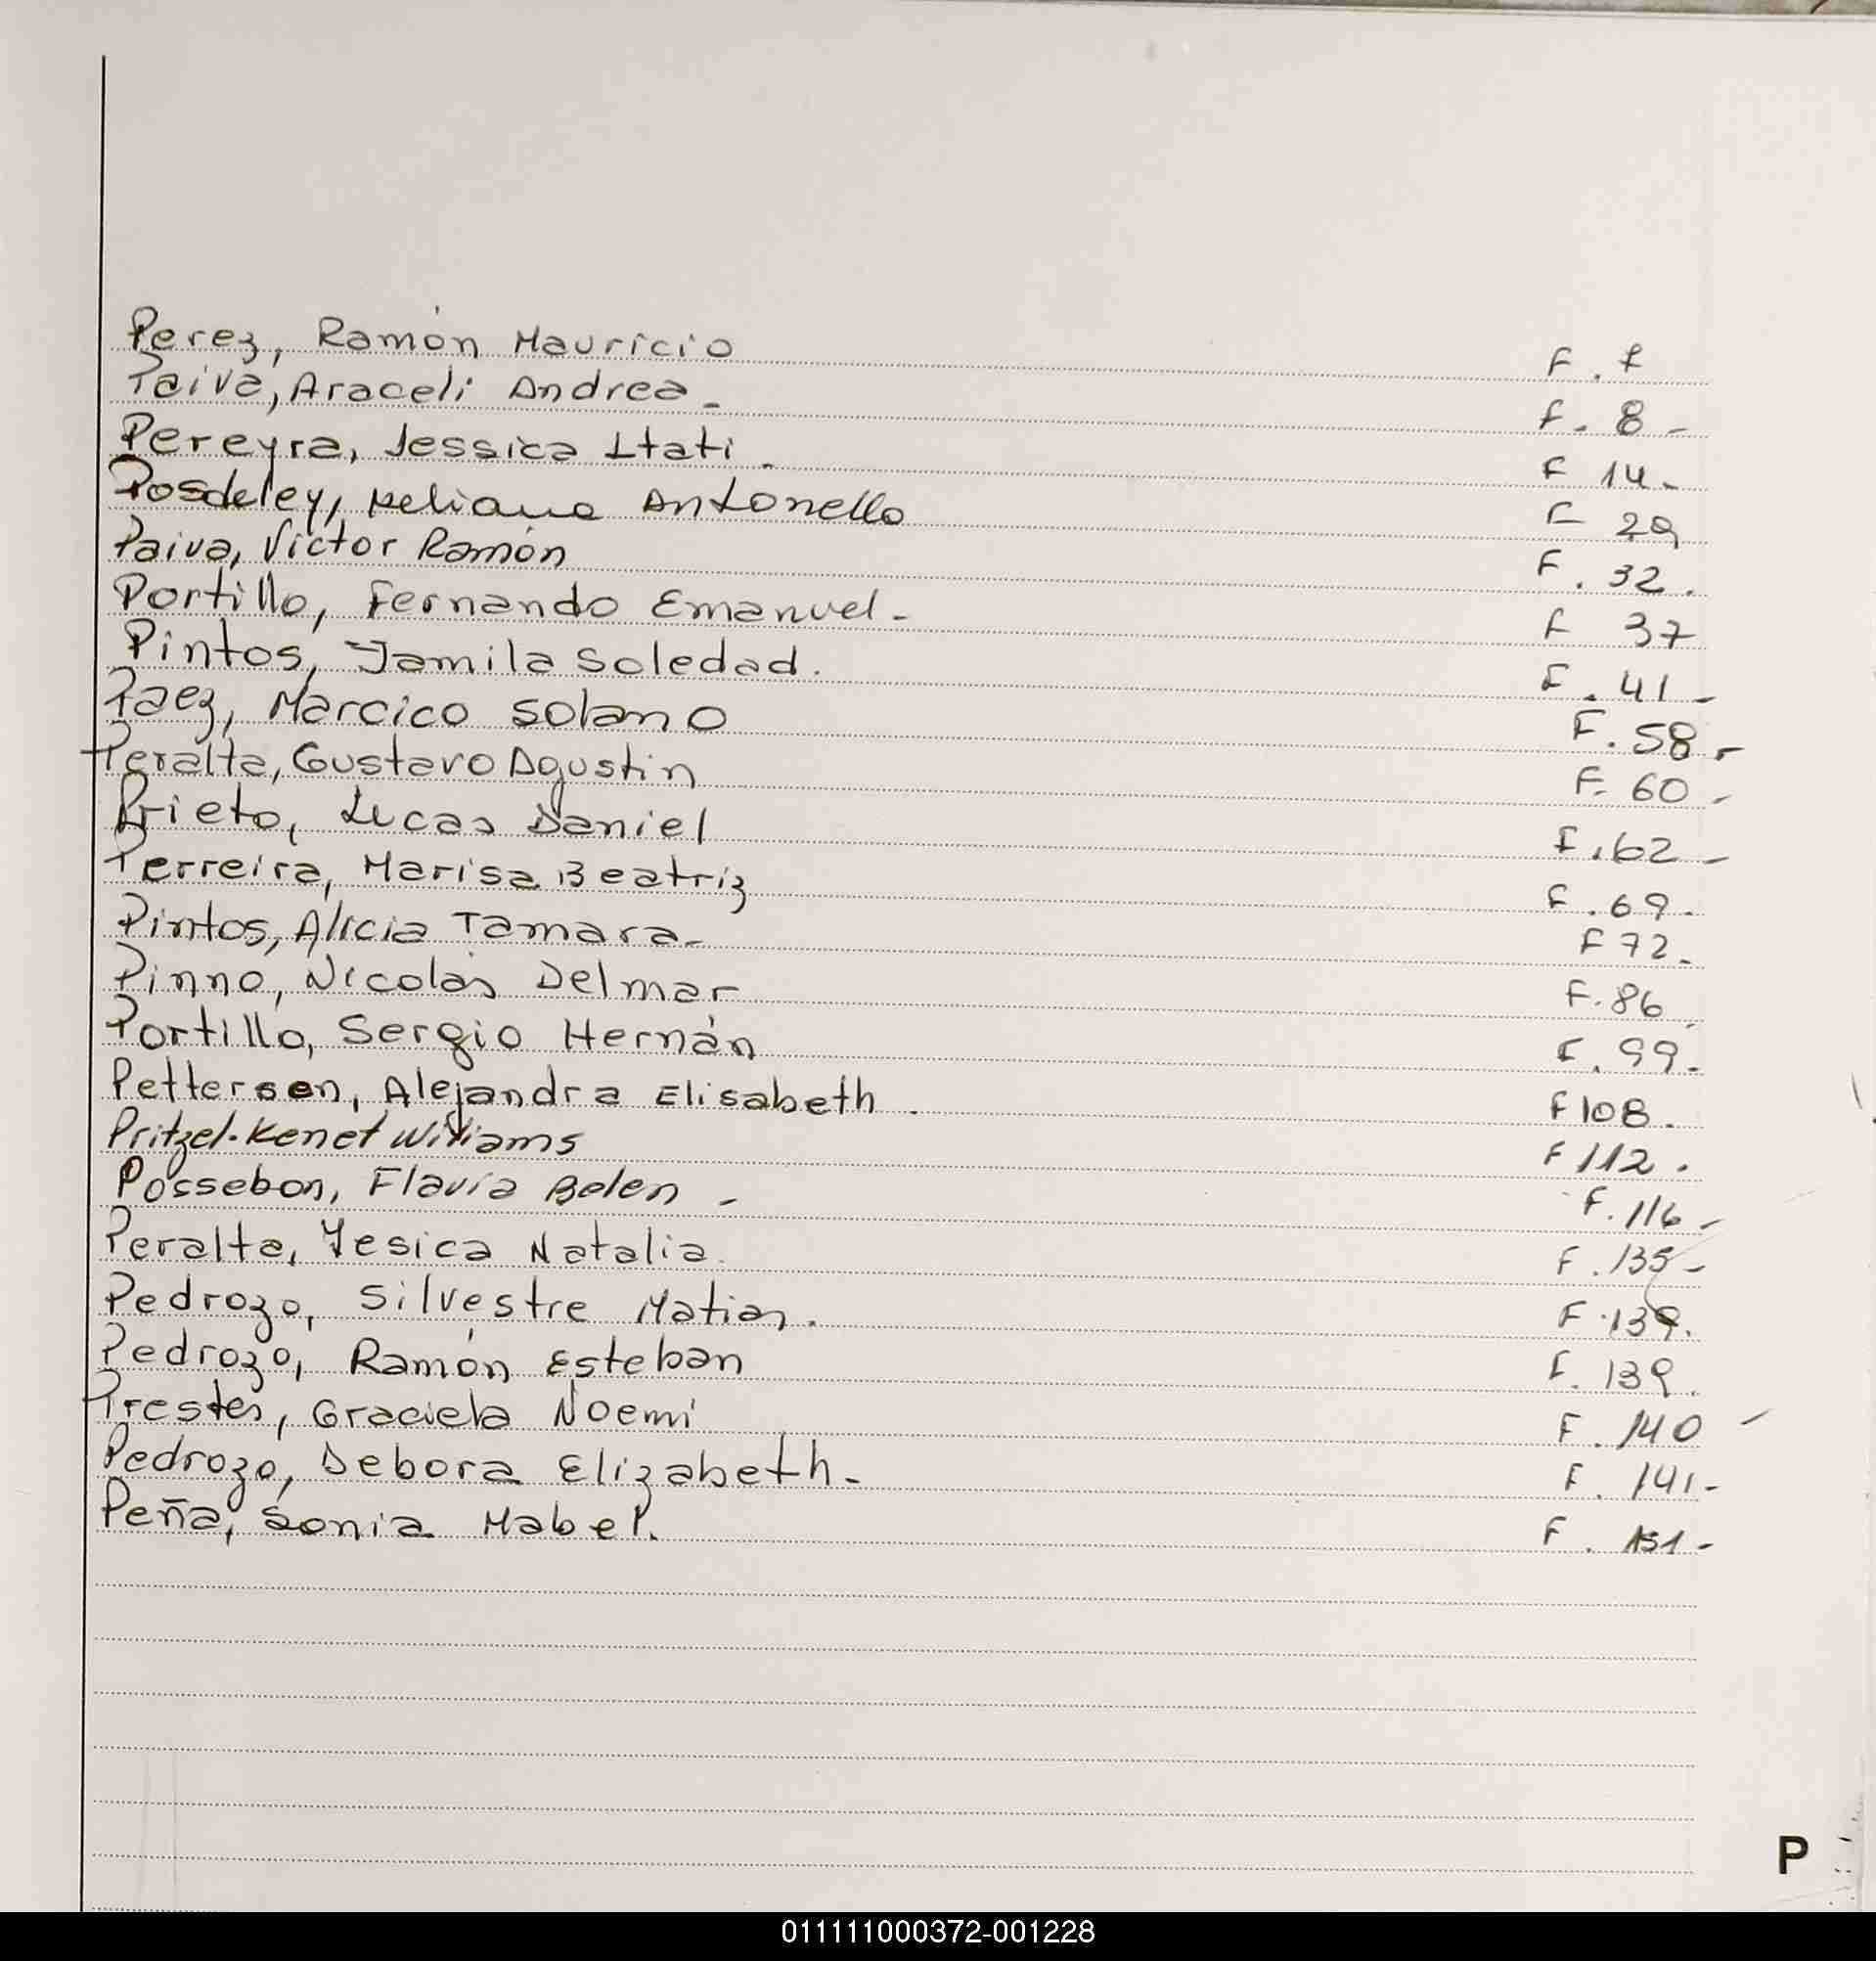 Perez, Ramón Mauricio F. 7
Paiva, Araceli Andrea - F. 8 -
Pereyra, Jessica Itati . F 14 -
Posdeley, Meliana Antonella F 29
Paiva, Victor Ramón F. 32 .
Portillo, Fernando Emanuel - F 37
Pintos, Jamila Soledad . F. 41 -
Paez, Marcico Solano F. 58 -
Peralta, Gustavo Agustin F. 60 -
Prieto, Lucas Daniel F. 62 -
Perreira, Marisa Beatriz F. 69 .
Pintos, Alicia Tamara - F 72 .
Pinno, Nicolás Delmar F. 86 .
Portillo, Sergio Hernán F. 99 .
Petterson, Alejandra Elisabeth . F 108 .
Pritzel. Kenet Williams F 112 .
Possebon, Flavia Belen - F. 116 -
Peralta, Yesica Natalia . F. 135 -
Pedrozo, Silvestre Matias . F. 139 .
Pedrozo, Ramón Esteban F. 139 .
Prestes, Graciela Noemi F. 140 -
Pedrozo, Debora Elizabeth - F. 141 -
Peña, Sonia Mabel . F. 151 -
P
011111000372-001228